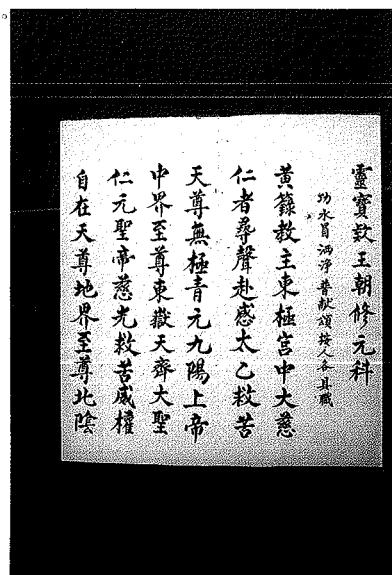 靈寶教王朝修元科
功水員洒淨普献頌 接人各具職
黃籙教主東極宮中大慈
仁者尋聲赴感太乙救苦
天尊無極青元九陽上帝
中界至尊東嶽天齊大聖
仁元聖帝慈光救苦威權
自在天尊地界至尊北陰